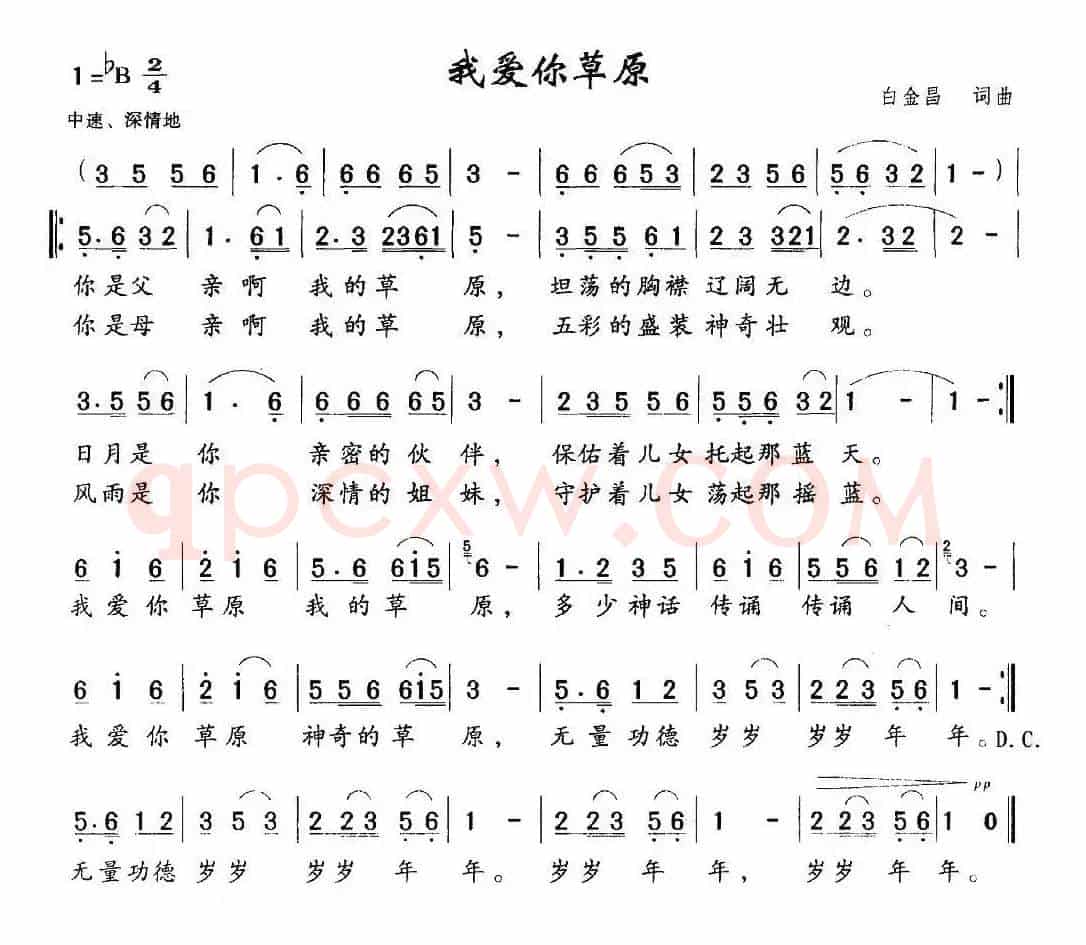 我爱你草原
1=♭B 2/4
白金昌 词曲
中速、深情地
(3 5 5 6 | 1· 6 | 6 6 6 5 | 3 - | 6 6 6 5 3 | 2 3 5 6 | 5 6 3 2 | 1 - ) |
‖: 5· 6 3 2 | 1· 6 1 | 2· 3 2 3 6 1 | 5 - | 3 5 5 6 1 | 2 3 3 2 1 | 2· 3 2 | 2 - |
你是父 亲啊 我的草 原, 坦荡的胸襟 辽阔无 边。
你是母 亲啊 我的草 原, 五彩的盛装 神奇壮 观。
3· 5 5 6 | 1· 6 | 6 6 6 6 5 | 3 - | 2 3 5 5 6 | 5 5 6 3 2 | 1 - | 1 - :‖
日月是 你 亲密的伙 伴, 保佑着儿女 托起那蓝 天。
风雨是 你 深情的姐 妹, 守护着儿女 荡起那摇 蓝。
qpcxw.com
6 i 6 | 2 i 6 | 5· 6 6 i 5 | 5 6 - | 1· 2 3 5 | 6 i 6 | 5 5 6 1 2 | 2 3 - |
我爱你 草原 我的草 原, 多少神话 传诵 传诵人 间。
6 i 6 | 2 i 6 | 5 5 6 6 i 5 | 3 - | 5· 6 1 2 | 3 5 3 | 2 2 3 5 6 | 1 - :‖
我爱你 草原 神奇的草 原, 无量功德 岁岁 岁岁年 年。D.C.
pp
5· 6 1 2 | 3 5 3 | 2 2 3 5 6 | 1 - | 2 2 3 5 6 | 1 - | 2 2 3 5 6 | 1 0 ‖
无量功德 岁岁 岁岁年 年。 岁岁年 年, 岁岁年 年。